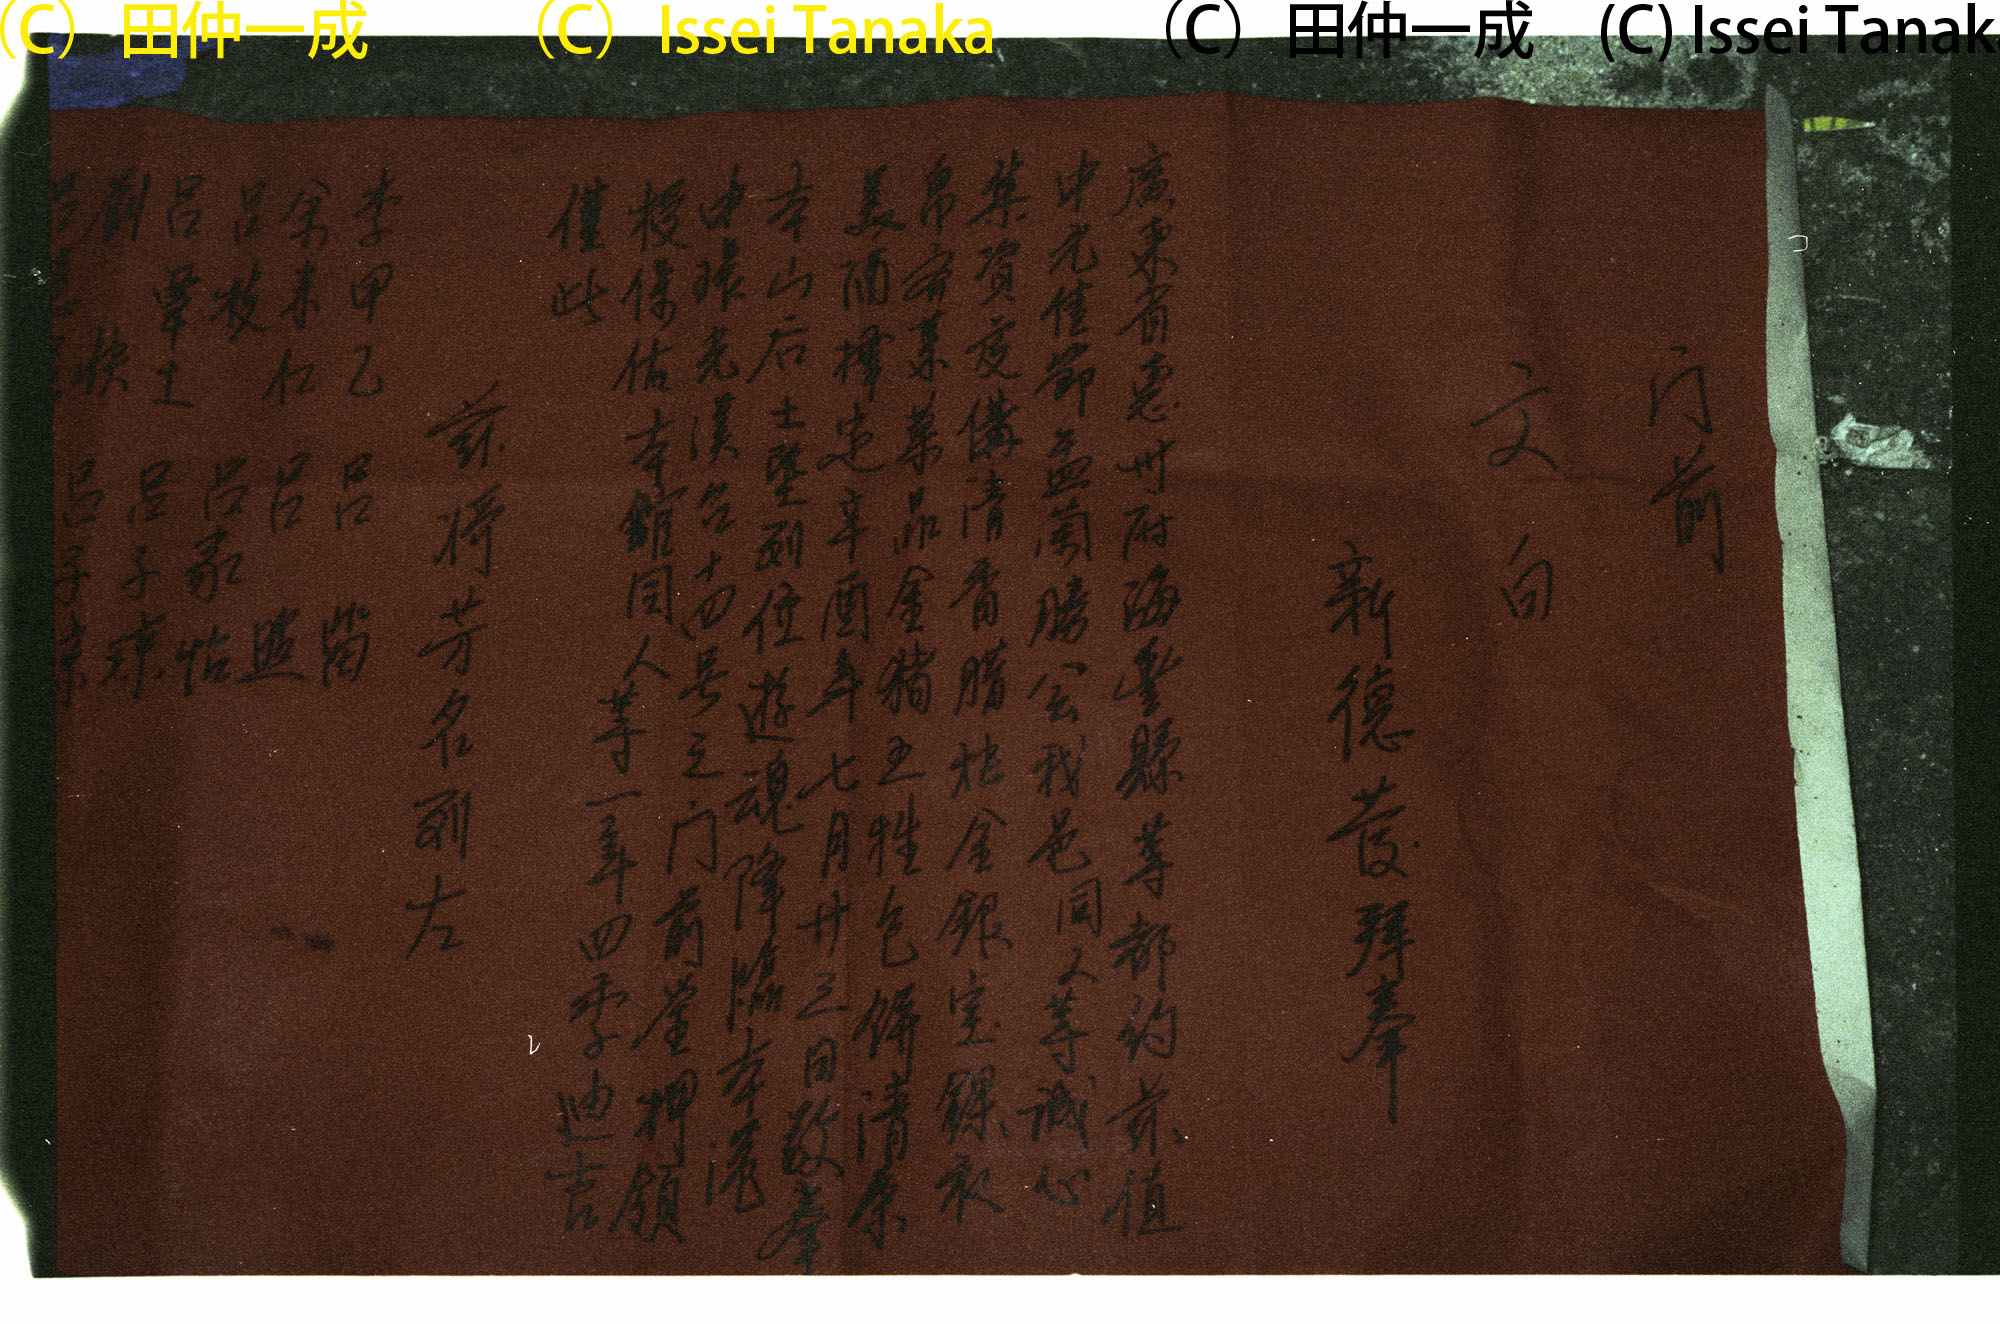 (C) 田仲一成 (C) Issei Tanaka (C) 田仲一成 (C) Issei Tanaka
门前
文白
新德發拜奉
廣東省惠州府海豐縣等都約茲值
中元佳節盂蘭勝会我邑同人等誠心
集資爰備清香腊烛金銀宝錁衣
帛齊菓菜品金豬五牲包餅清茶
美酒擇定辛酉年七月廿三日敬奉
本山后土墜列位遊魂降臨本港
中環光漢台十四号之门前荃押領
授保佑本舘同人等一年四季迪吉
僅此
茲将芳名列左
李甲乙 呂
余木仁 呂照
呂枝 呂家怡
呂單土 呂子球
劉 快 呂子